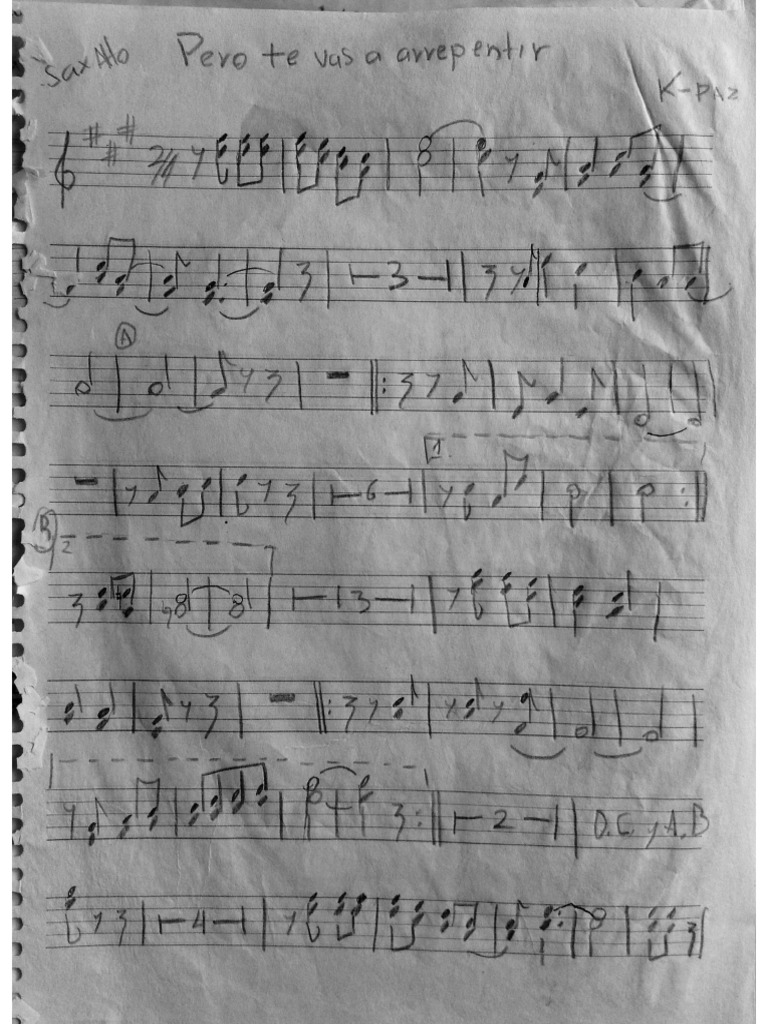 Sax Alto Pero te vas a arrepentir
K-paz
2/4
3
A
1
6
B
2
3
2 D.C y A, B
4